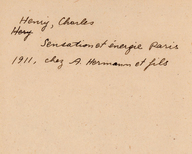 Henry, Charles
Hery
Sensation et énergie Paris
1911, chez A. Hermann et fils